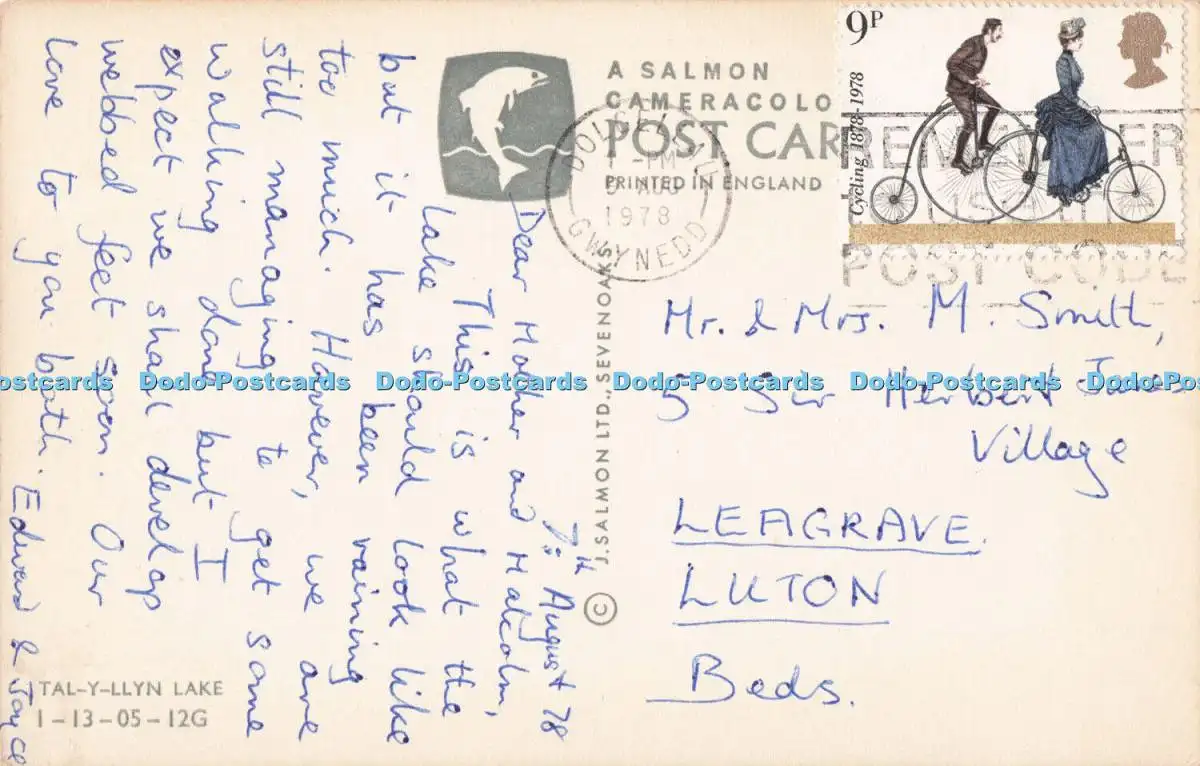 7th August 78
Dear Mother and Malcolm,
This is what the
lake should look like
but it has been raining
too much. However, we are
still managing to get some
walking done but I
expect we shall develop
webbed feet soon. Our
love to you both. Edward & Joyce
TAL-Y-LLYN LAKE
1-13-05-12G
A SALMON
CAMERACOLO
POST CAR
PRINTED IN ENGLAND
© J. SALMON LTD., SEVENOAKS
1978
GWYNEDD
9P
Cycling 1878-1978
REMEMBER
USE THE
POST CODE
Mr. & Mrs. M. Smith,
5 Sir Herbert Janes
Village
LEAGRAVE.
LUTON
Beds.
Dodo-Postcards Dodo-Postcards Dodo-Postcards Dodo-Postcards Dodo-Postcards Dodo-Postcards